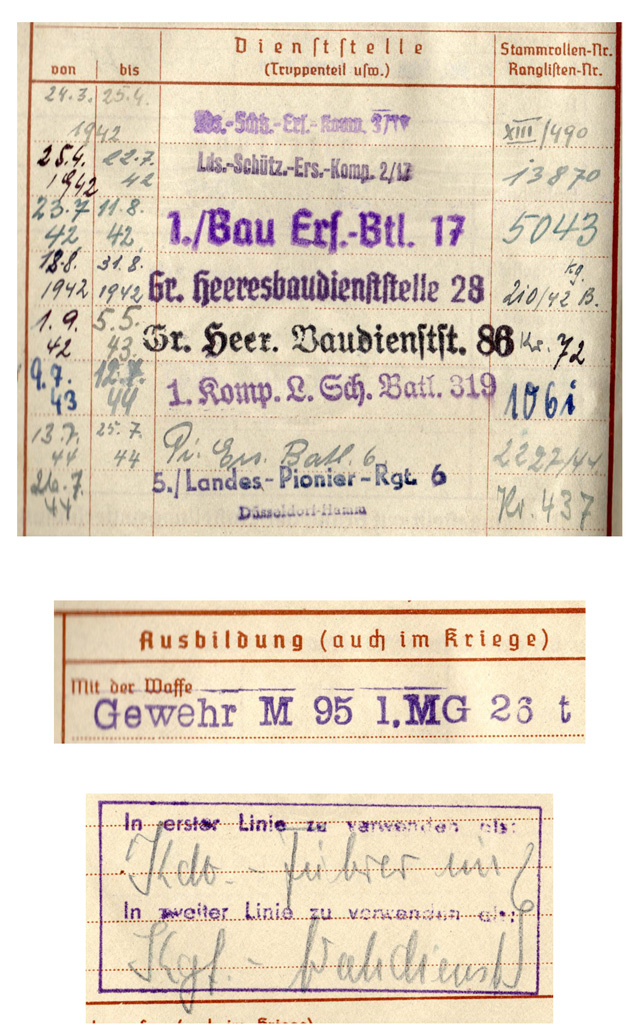 Dienststelle
von bis (Truppenteil usw.) Stammrollen-Nr. Ranglisten-Nr.
24.3. 25.4. 1942 Lds.-Schtz.-Ers.-Komp. XIII/490
25.4. 1942 22.7. 42 Lds.-Schütz.-Ers.-Komp. 2/17 13870
23.7 42 11.8. 42 1./Bau Ers.-Btl. 17 5043
12.8. 1942 31.8. 1942 Gr. Heeresbaudienststelle 28 210/42 B.
1.9. 42 5.5. 43 Gr. Heer. Baudienstst. 86 Kr. 72
9.7. 43 12.7. 44 1. Komp. L. Sch. Batl. 319 106i
13.7. 44 25.7. 44 Pi. Ers. Batl. 6 2227/44
26.7. 44 5./Landes-Pionier-Rgt. 6 Kr. 437
Düsseldorf-Hamm
Ausbildung (auch im Kriege)
Mit der Waffe
Gewehr M 95 l.MG 26 t
In erster Linie zu verwenden als:
Kdo.-Führer
In zweiter Linie zu verwenden als:
Kgf.-